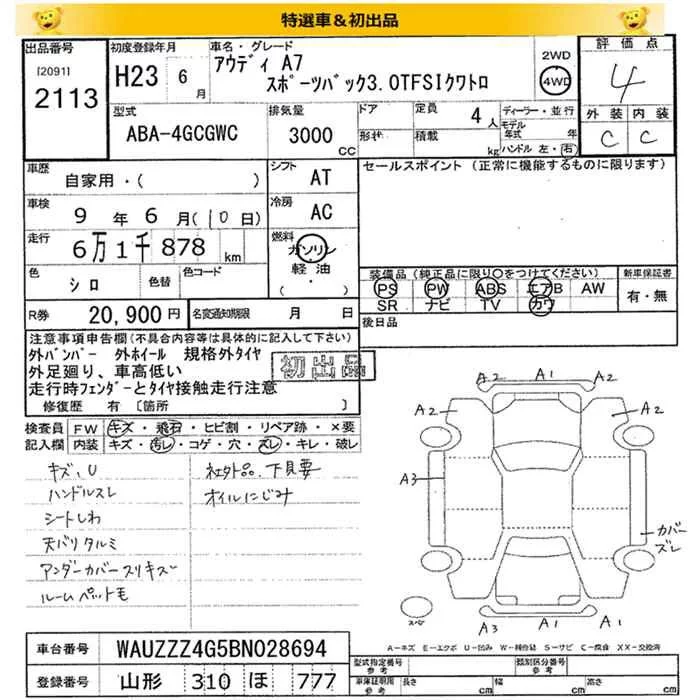 特選車＆初出品
出品番号
[2091]
2113
初度登録年月
H23 6月
車名・グレード
アウディ A7
スポーツバック3.0TFSIクワトロ
2WD
4WD
評価点
4
外装 内装
C C
型式
ABA-4GCGWC
排気量
3000
CC
ドア
形状
定員
4人
積載
kg
ディーラー・並行
モデル
年式 年
ハンドル 左・右
車歴
自家用・( )
シフト
AT
セールスポイント (正常に機能するものに限ります)
車検
9年 6月(10日)
冷房
AC
走行
6万1千878 km
燃料
ガソリン
軽油
( ・ )
色
シロ
色替
色コード
装備品 (純正品に限り〇をつけてください)
PS PW ABS エアB AW
SR ナビ TV カワ
新車保証書
有・無
R券
20,900円
名変通知期限 月 日
後日品
注意事項申告欄(不具合内容等は具体的に記入して下さい)
外バンパー 外ホイール 規格外タイヤ
外足廻り、車高低い
走行時フェンダーとタイヤ接触走行注意
初出品
修復歴 有 [箇所 ]
検査員
記入欄
FW キズ・飛石・ヒビ割・リペア跡・×要
内装 キズ・汚レ・コゲ・穴・スレ・キレ・破レ
キズ、U
ハンドルスレ
シートしわ
天バリタルミ
アンダーカバースリキズ
ルームペットモ
社外品、下見要
オイルにじみ
A2 A1 A1
A2 A2
A3
カバー
ズレ
スペア
A3 A1 A1 A2
A−キズ E−エクボ U−凹み W−補修跡 S−サビ C−腐食 XX−交換済
車台番号
WAUZZZ4G5BN028694
登録番号
山形 310 ほ 777
型式指定番号
参考
類別区分番号
参考
車庫証明用
参考
長さ cm 幅 cm 高さ cm